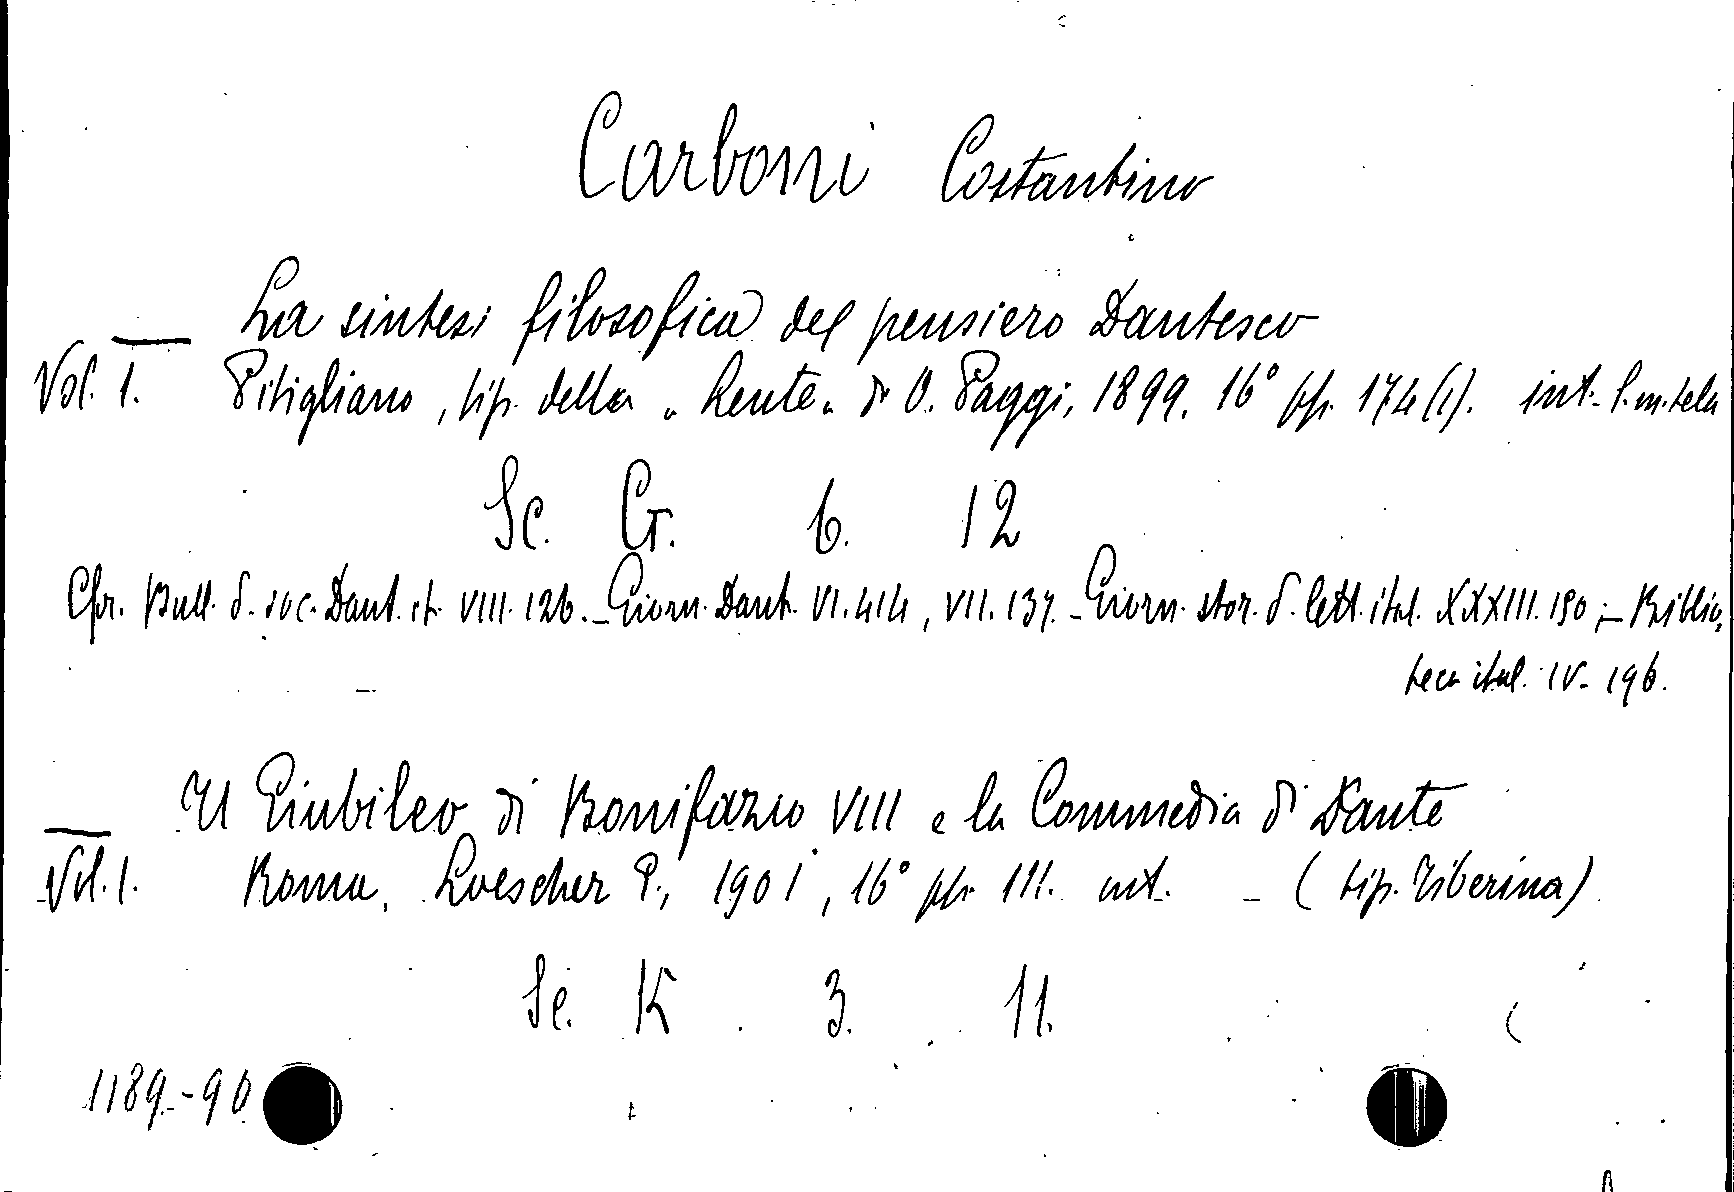 Carboni Costantino
La sintesi filosofica del pensiero Dantesco
Vol. 1. Pitigliano, tip. della "Lente" di O. Paggi, 1899. 16° pp. 174 (1). int. l. m. tela
Sc. G. 6. 12
Cfr. Bull. d. soc. Dant. it. VIII. 126. - Giorn. Dant. VI. 414, VII. 137. - Giorn. stor. d. lett. ital. XXXIII. 180; - Biblio,
teca ital. IV - 196.
Il Giubileo di Bonifazio VIII e la Commedia di Dante
Vol. 1. Roma, Loescher E., 1901, 16° pp. 111. int. - (tip. Tiberina)
Sc. K. 3. 11.
1189.-90